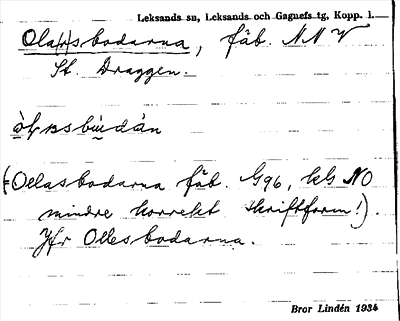 Leksands sn, Leksands och Gagnefs tg, Kopp. l.
Ola(s)sbodarna, fäb. NNV
St. Draggen.
(=Ollasbodarna fäb. G96, kls NO
mindre korrekt skriftform!).
Jfr Ollesbodarna.
Bror Lindén 1934